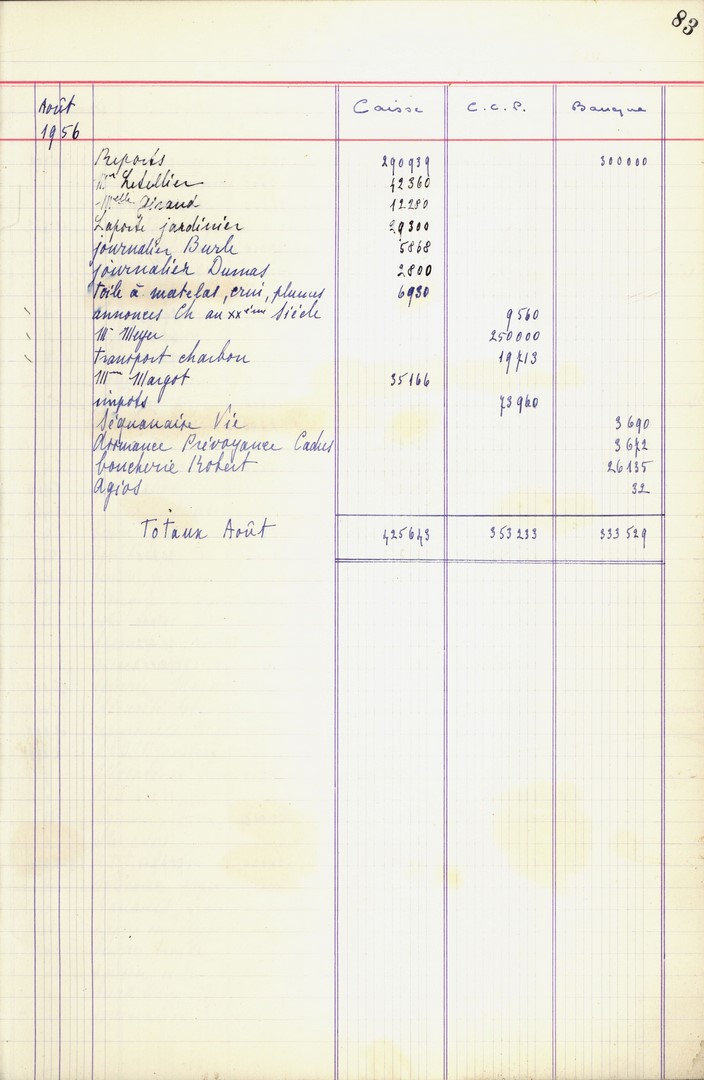 83
Août Caisse C.C.P. Banque
1956
Reports 290939 300000
Mme Letellier 42360
Melle Giraud 12280
Laporte jardinier 29300
journalier Burle 5868
journalier Dumas 2800
toile à matelas, crin, plumes 6930
annonces Ch au XXème Siècle 9560
Mr Meyer 250000
transport charbon 19713
Mme Margot 35166
impôts 73960
Séquanaise Vie 3690
Prévoyance Cadres 3672
boucherie Robert 26135
Agios 32
Totaux Août 425643 353233 333529